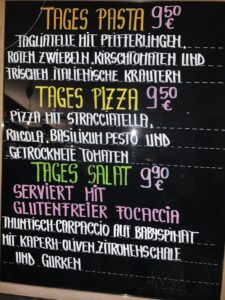 TAGES PASTA 9.50 €
TAGLIATELLE MIT PFIFFERLINGEN,
ROTEN ZWIEBELN, KIRSCHTOMATEN UND
FRISCHEN ITALIENISCHE KRÄUTERN
TAGES PIZZA 9.50 €
PIZZA MIT STRACCIATELLA,
RUCOLA, BASILIKUM PESTO UND
GETROCKNETE TOMATEN
TAGES SALAT 9.90 €
SERVIERT MIT
GLUTENFREIER FOCACCIA
THUNFISCH-CARPACCIO AUF BABYSPINAT
MIT KAPERN-OLIVEN, ZITRONENSCHALE
UND GURKEN